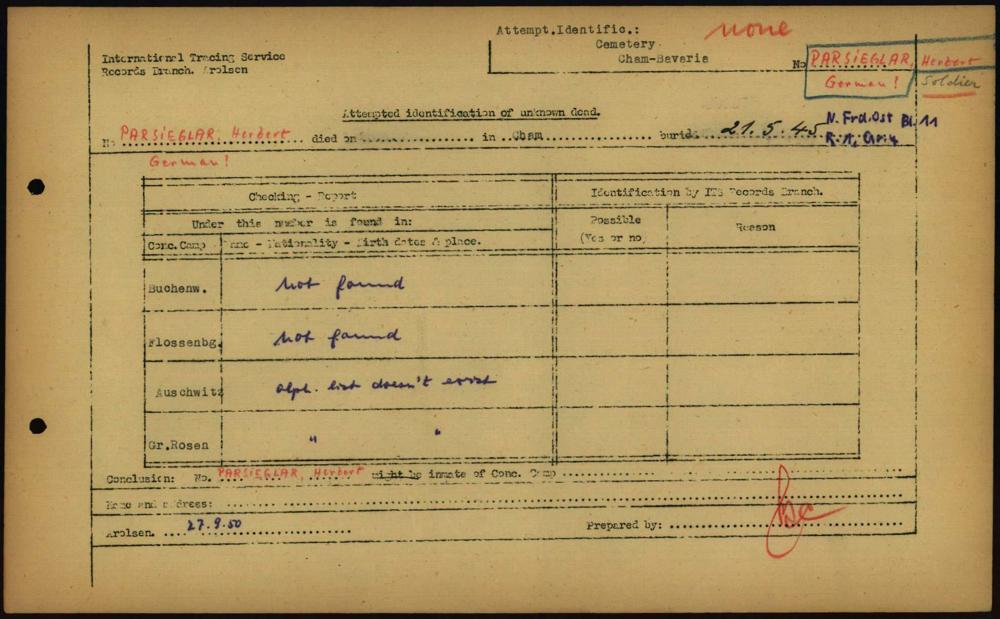 Attempt.Identific.: none
Cemetery
Cham-Bavaria
International Tracing Service
Records Branch. Arolsen
No PARSIEGLAR, Herbert
German! Soldier
Attempted identification of unknown dead.
No PARSIEGLAR, Herbert died on in Cham buried 21.5.45 N. Frd.Ost Bl. 11
German!
Checking - Report
Identification by ITS Records Branch.
Under this number is found in:
Possible
(Yes or no)
Reason
Conc. Camp Name - Nationality - Birth dates & place.
Buchenw. not found
Flossenbg. not found
Auschwitz alph. list doesn't exist
Gr.Rosen " "
Conclusion: No. PARSIEGLAR, Herbert might be inmate of Conc. Camp
Name and address:
Arolsen. 27.9.50
Prepared by: